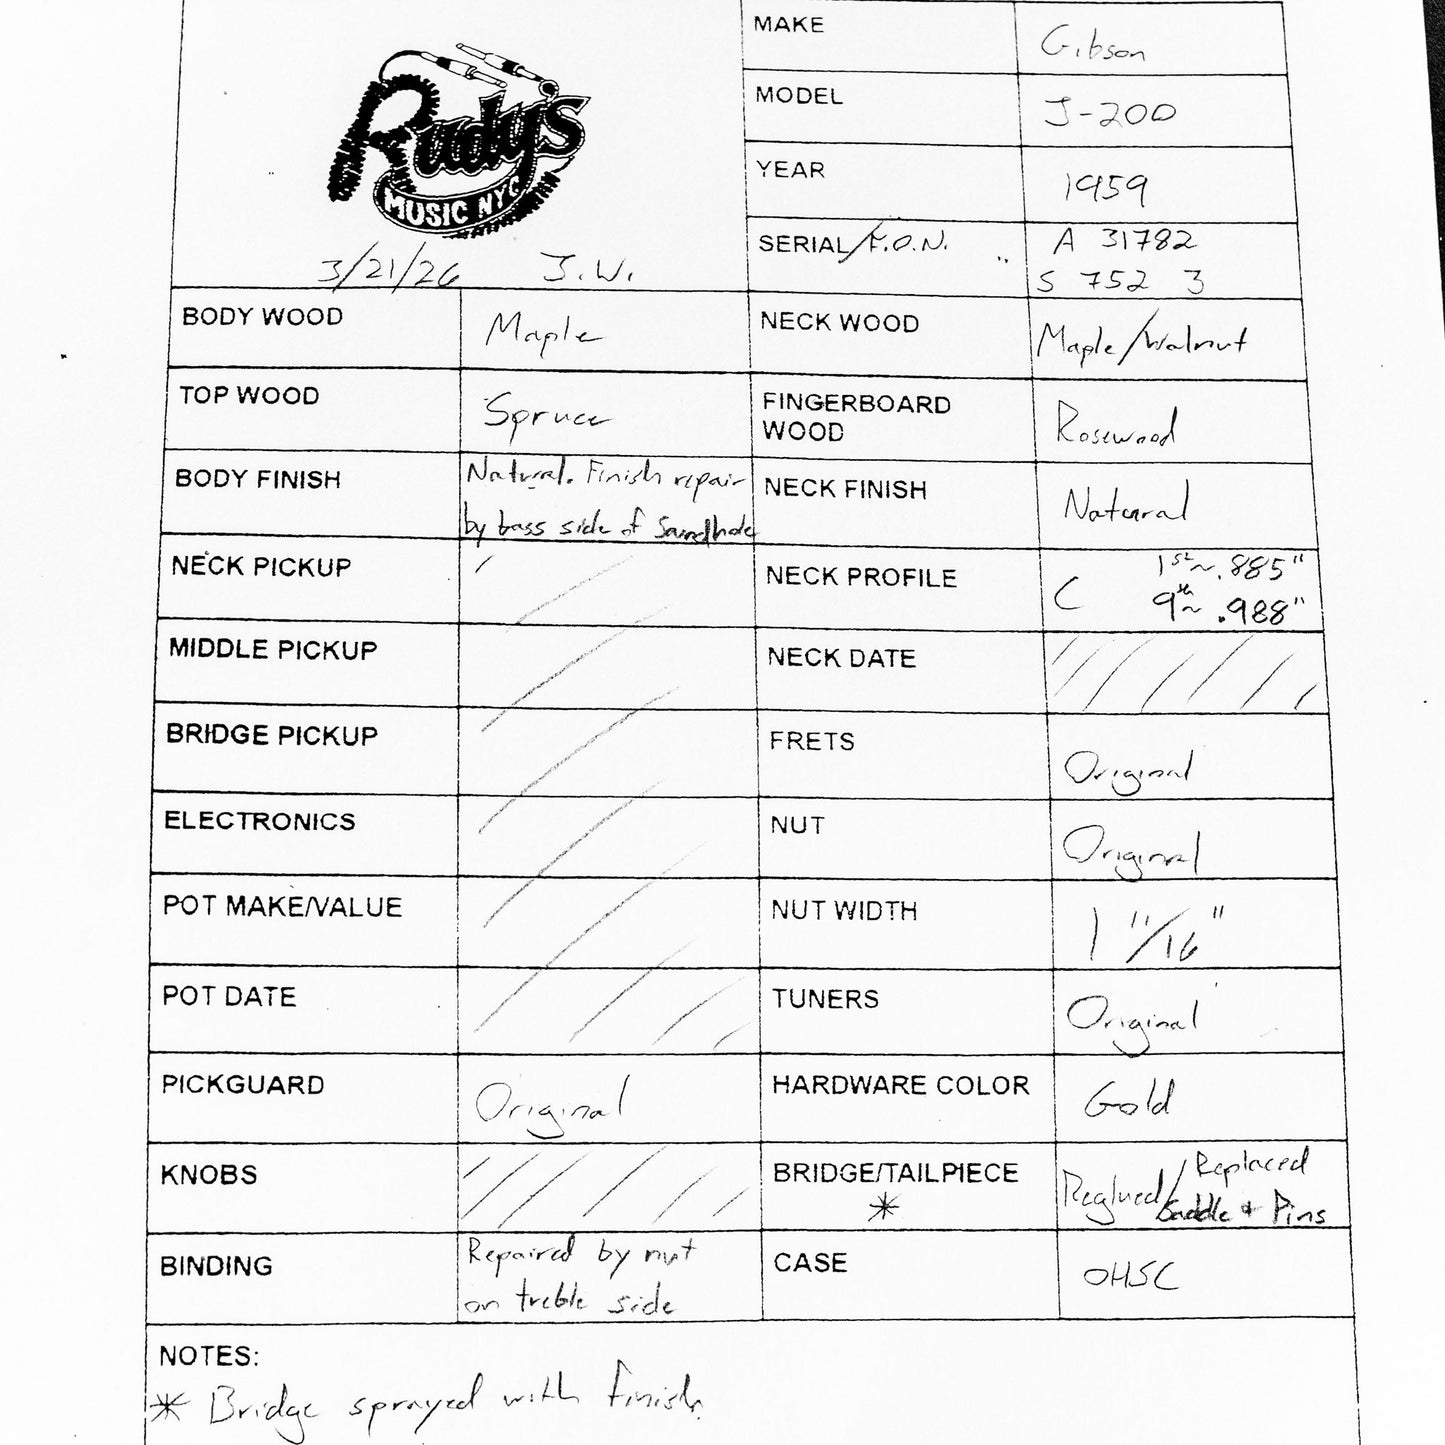 Rudy's
MUSIC NYC
3/21/26 J.W.
MAKE Gibson
MODEL J-200
YEAR 1959
SERIAL/F.O.N. A 31782
S 752 3
BODY WOOD Maple
NECK WOOD Maple/Walnut
TOP WOOD Spruce
FINGERBOARD
WOOD Rosewood
BODY FINISH Natural. Finish repair
by bass side of Soundhole
NECK FINISH Natural
NECK PICKUP
NECK PROFILE C 1st ~ .885"
9th ~ .988"
MIDDLE PICKUP
NECK DATE
BRIDGE PICKUP
FRETS Original
ELECTRONICS
NUT Original
POT MAKE/VALUE
NUT WIDTH 1 11/16"
POT DATE
TUNERS Original
PICKGUARD Original
HARDWARE COLOR Gold
KNOBS
BRIDGE/TAILPIECE * Reglued/Replaced
Saddle + Pins
BINDING Repaired by nut
on treble side
CASE OHSC
NOTES:
* Bridge sprayed with finish.